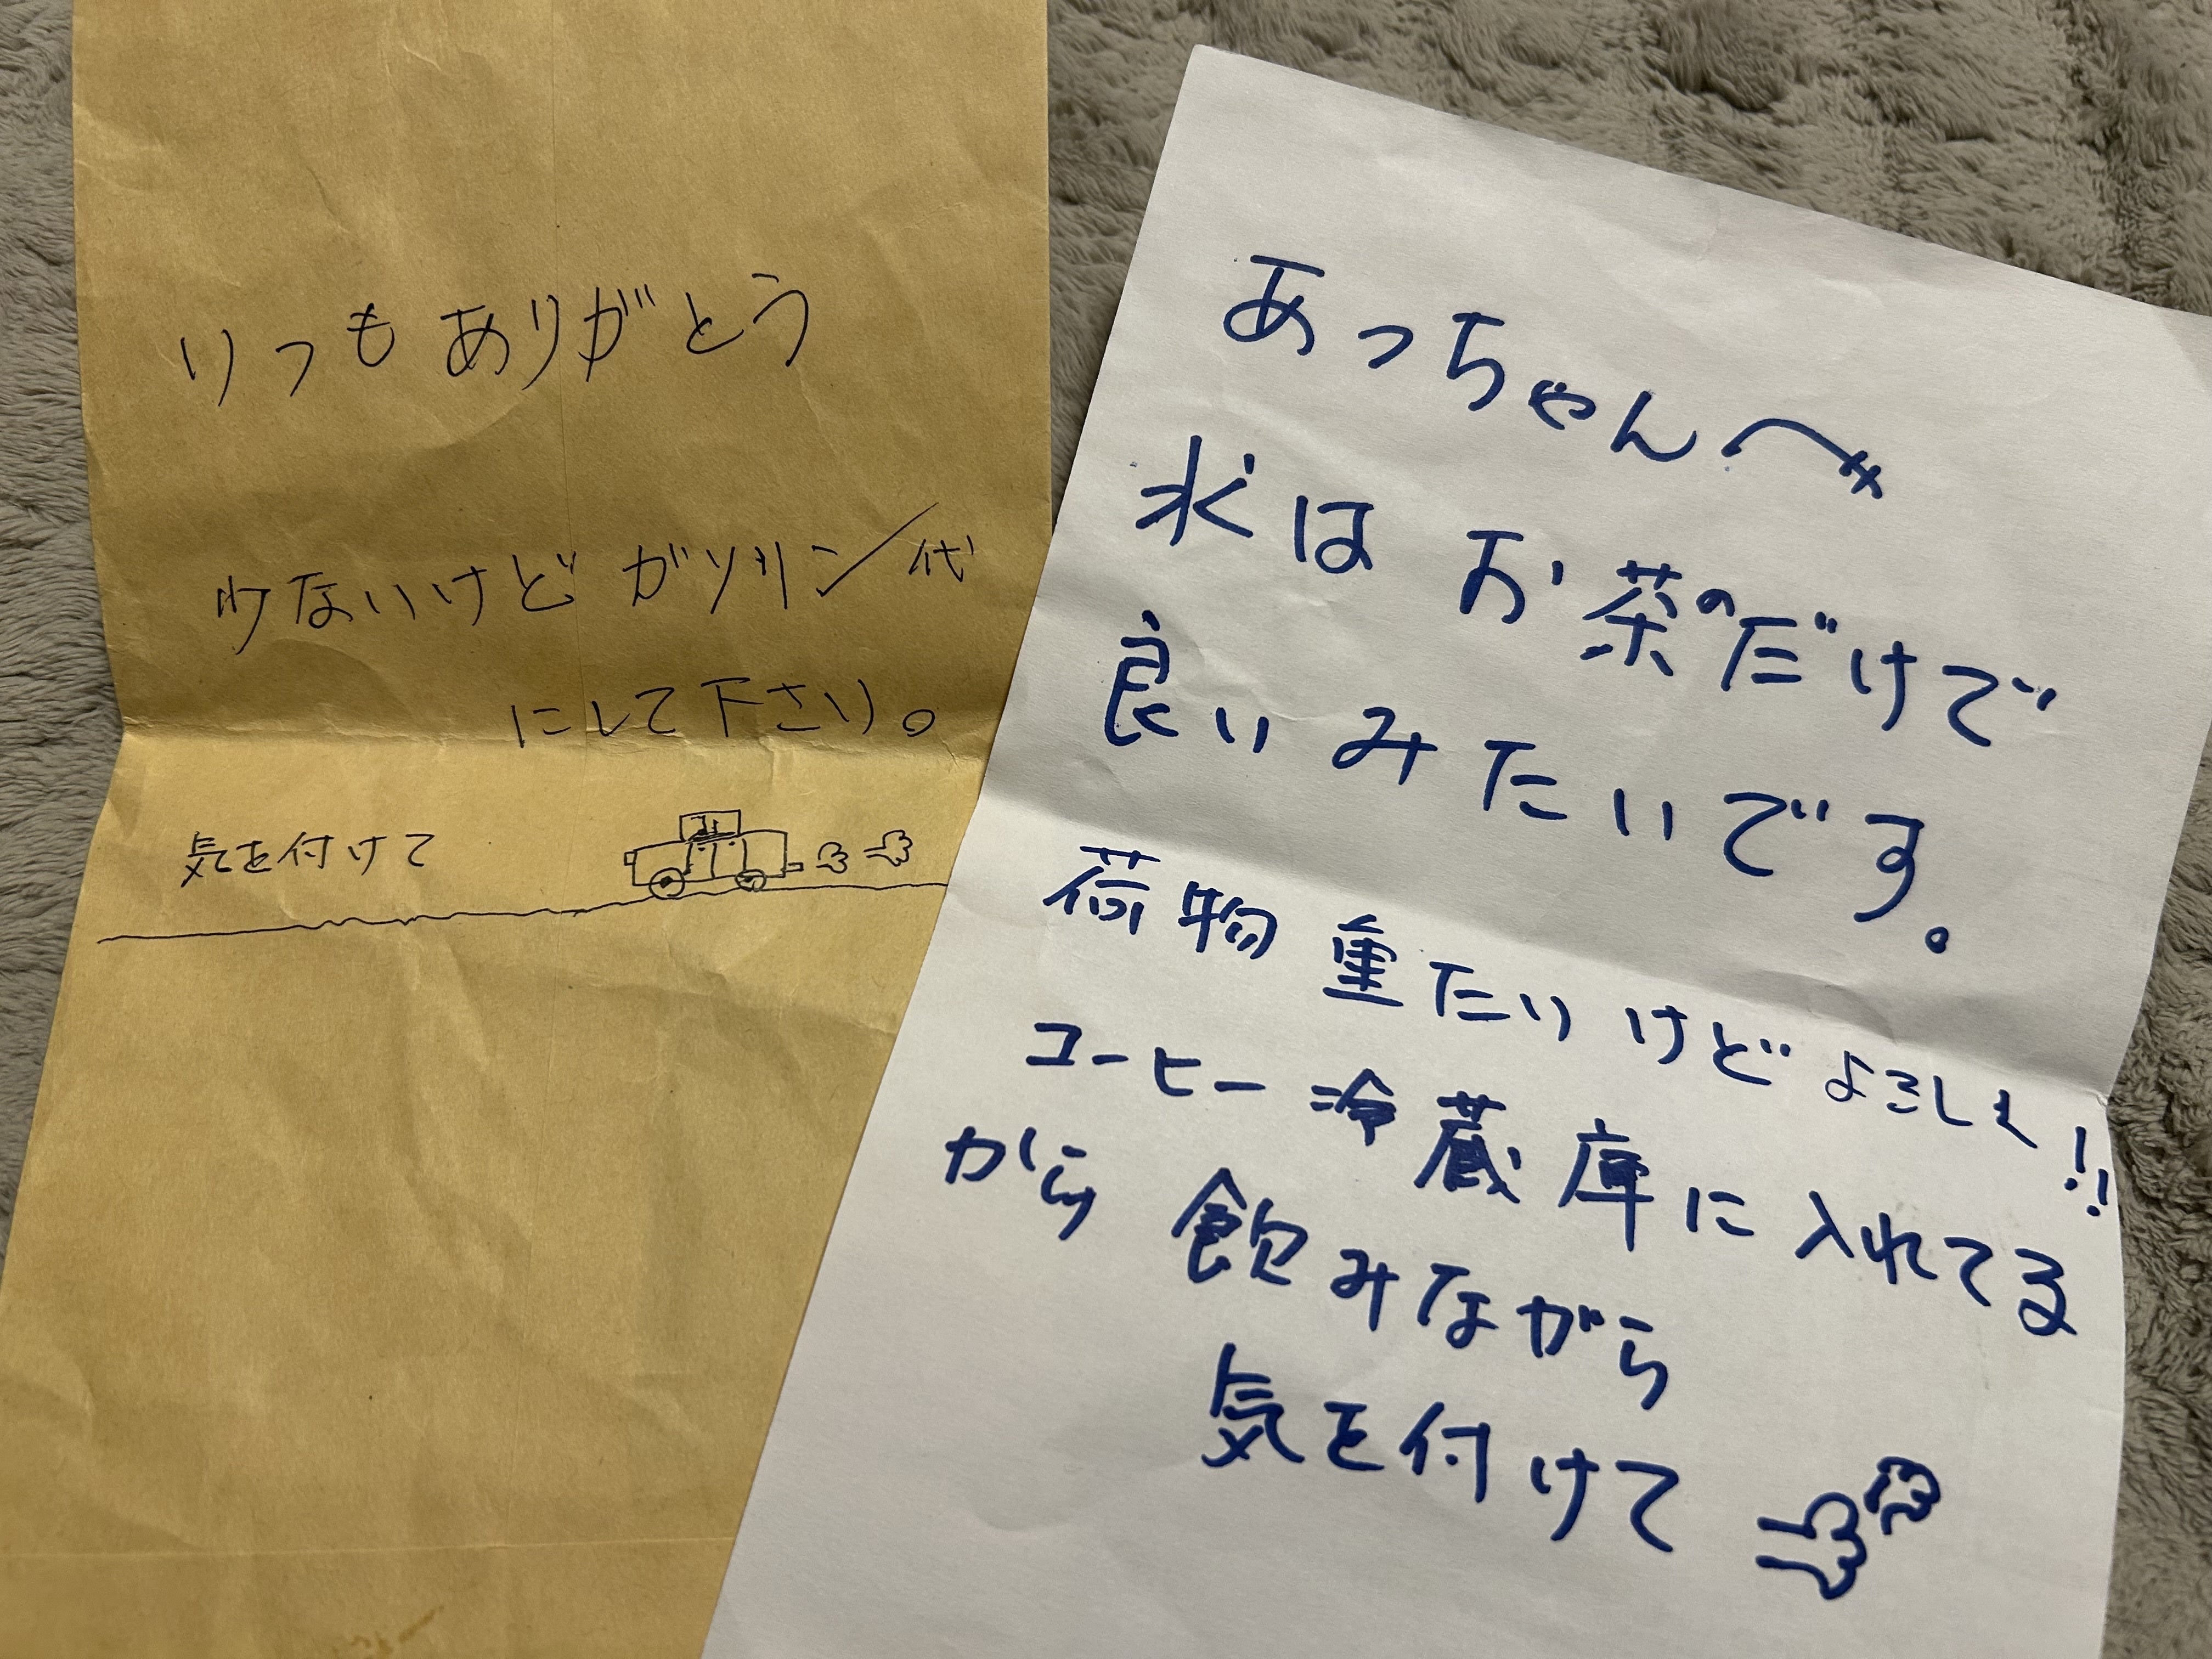 いつもありがとう
少ないけどガソリン代
にして下さい。
気を付けて
あっちゃんへ
水はお茶のだけで
良いみたいです。
荷物重たいけどよろしく!!
コーヒー冷蔵庫に入れてる
から飲みながら
気を付けて